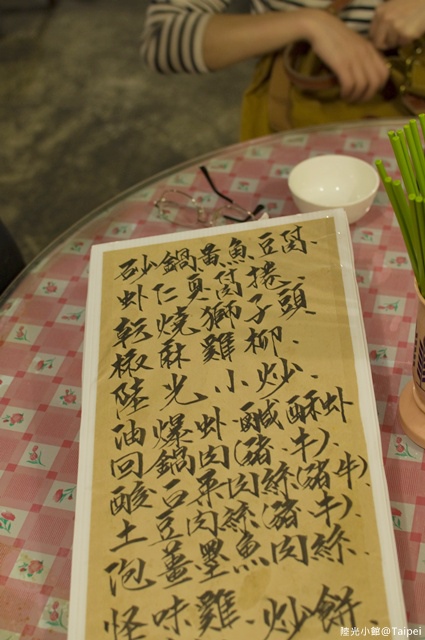 砂鍋黃魚豆
虾仁
乾燒獅子頭
椒麻雞柳.
陸光小炒.
油爆虾.鹹酥虾
回鍋肉(豬.牛).
酸肉絲(豬牛)
土豆肉絲(豬.牛).
泡薑墨魚肉絲.
怪味雞.炒餅.
陸光小館@Taipei